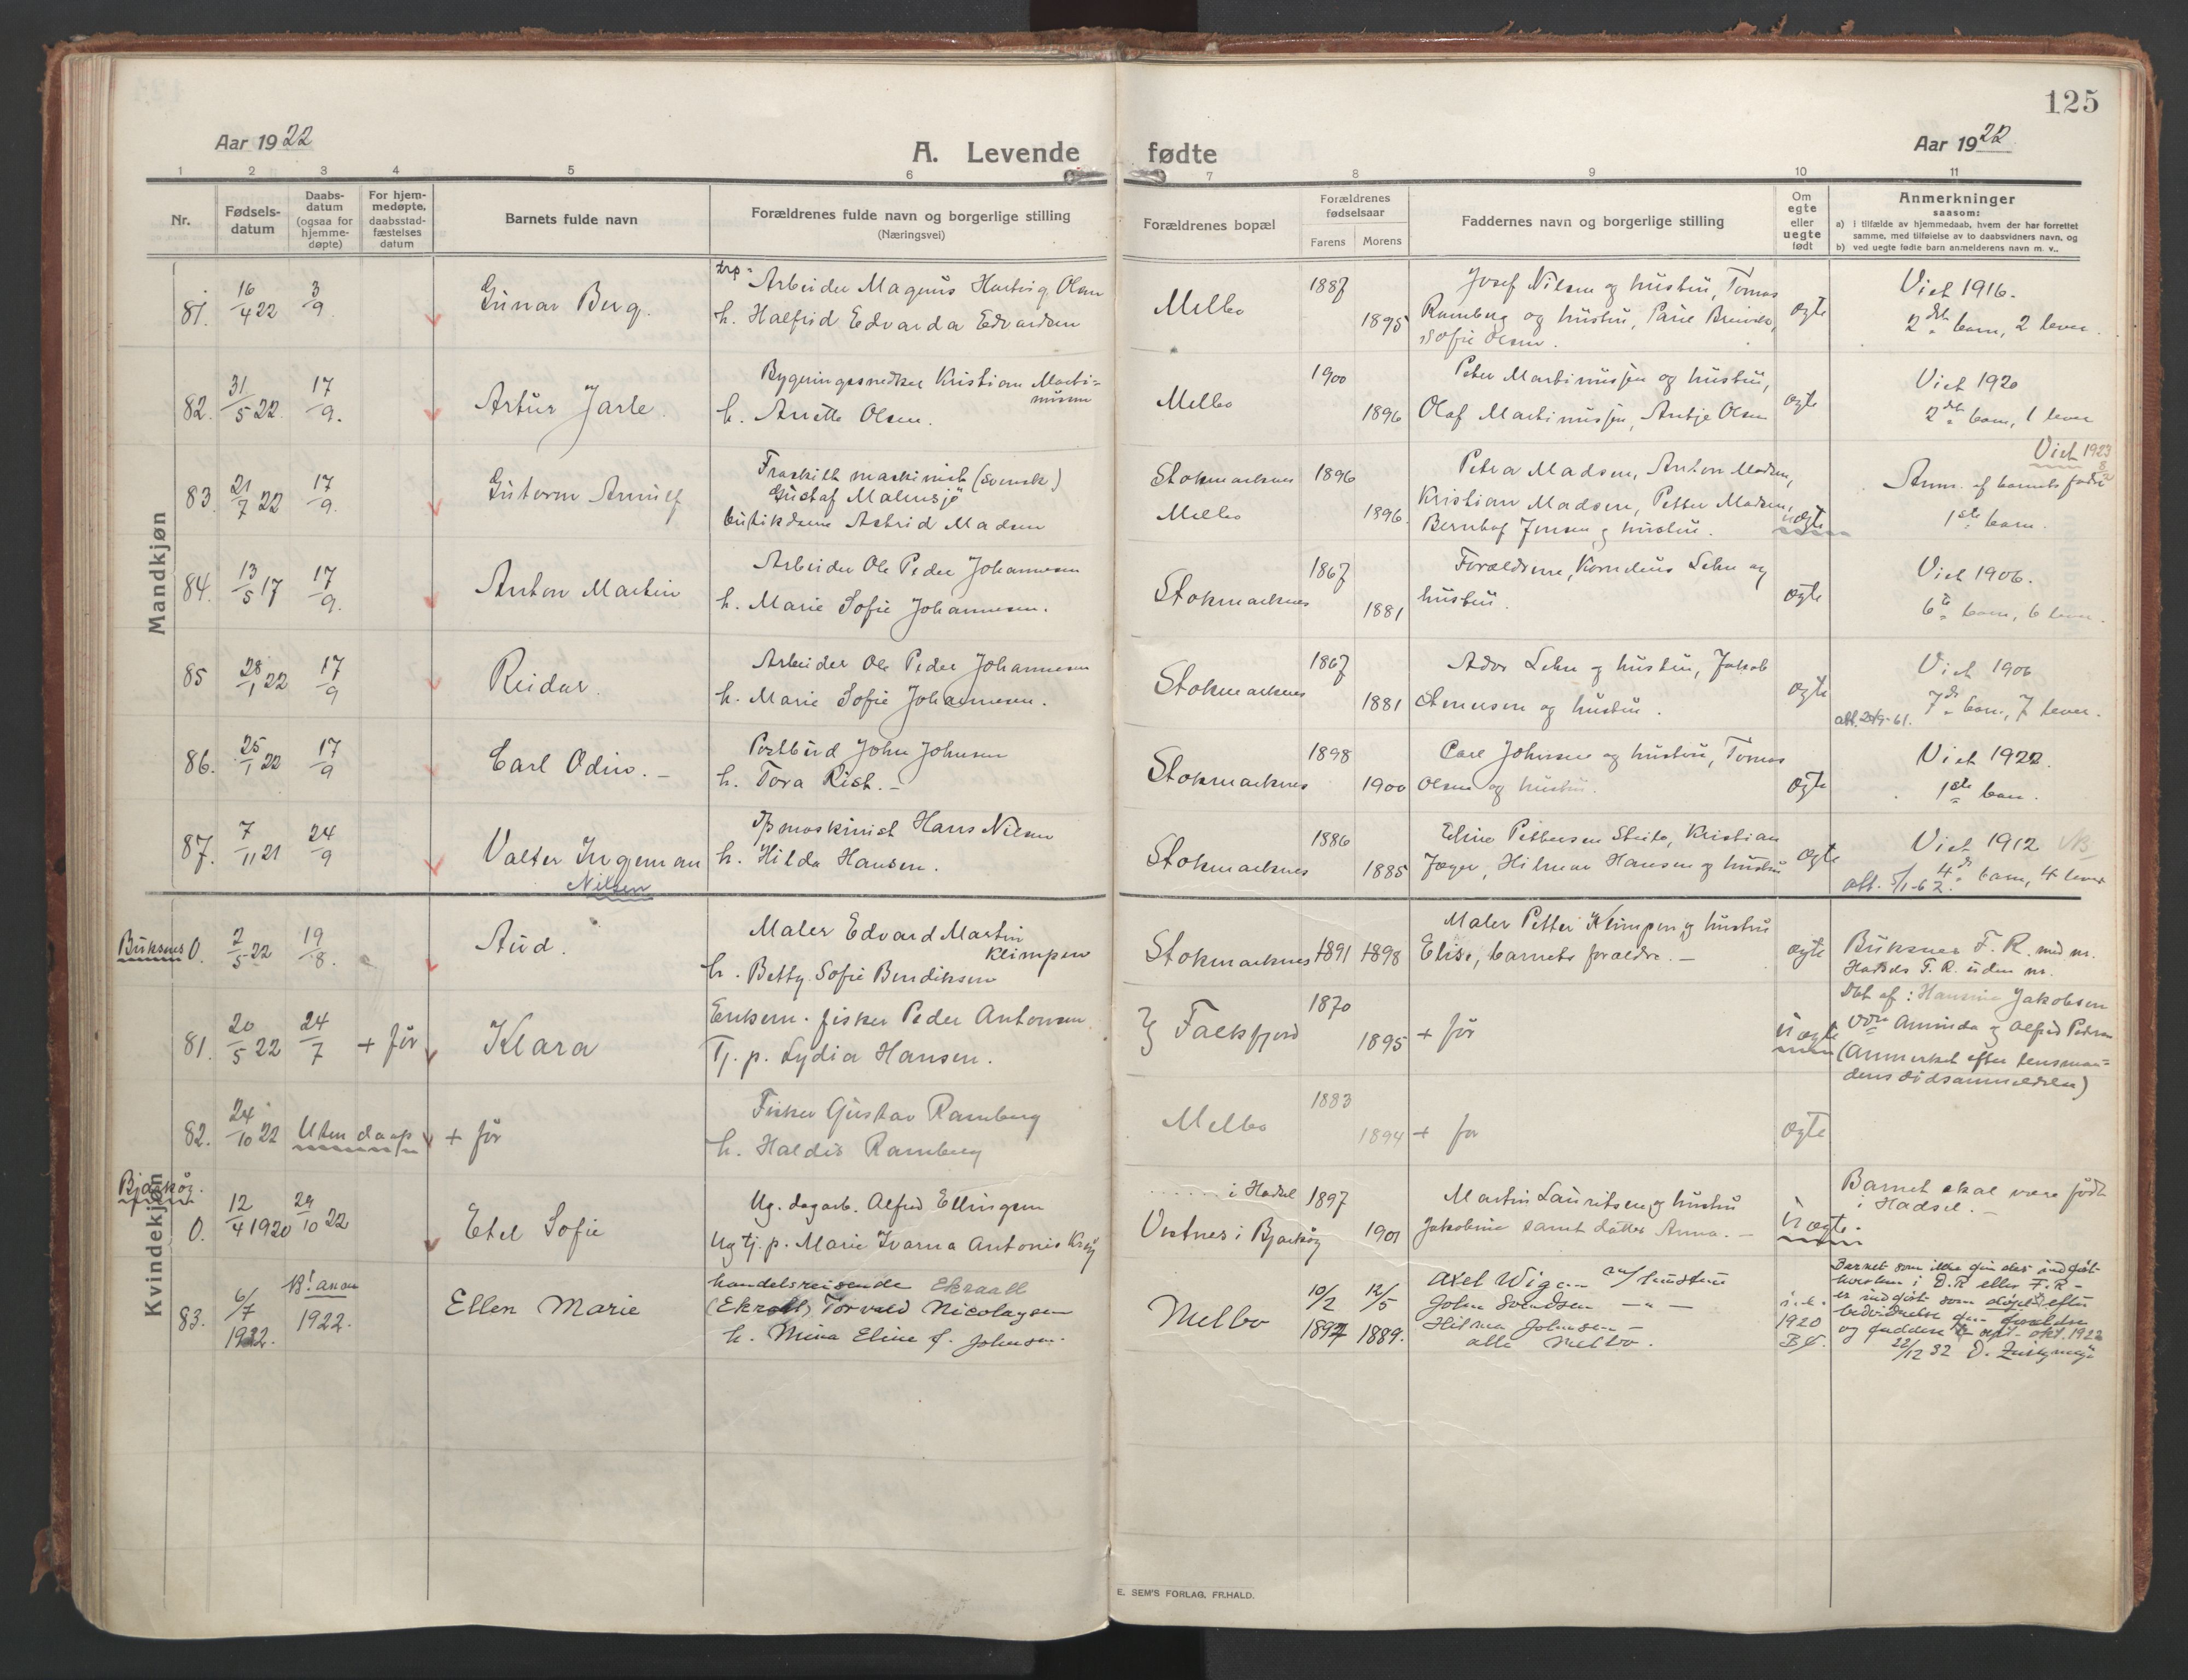 125
Aar 1922
A. Levende fødte
Aar 1922
1 2 3 4 5 6 7 8 9 10 11
Nr.
Fødsels-
datum
Daabs-
datum
(ogsaa for
hjemme-
døpte)
For hjem-
medøpte,
daabsstad-
fæstelses
datum
Barnets fulde navn
Forældrenes fulde navn og borgerlige stilling
(Næringsvei)
Forældrenes bopæl
Forældrenes
fødselsaar
Farens Morens
Faddernes navn og borgerlige stilling
Om
egte
eller
uegte
født
Anmerkninger
saasom:
a) i tilfælde av hjemmedaab, hvem der har forrettet
samme, med tilføielse av to daabsvidners navn, og
b) ved uegte fødte barn anmelderens navn m. v..
Mandkjøn
81. 16/4 22 3/9 Gunar Berg.
Arbeider Magnus Hartvig Olsen
h. Halfrid Edvarda Edvardsen
Melbo 1887 1895
Josef Nilsen og hustru, Tomas
Ramberg og hustru,
Sofie Olsen.
egte
Viet 1916.
2det barn, 2 lever.
82. 31/5 22. 17/9. Artur Jarle.
Bygningssnedker Kristian Marti-
nussen
h. Anette Olsen.
Melbo 1900 1896
Peter Martinussen og hustru,
Olaf Martinussen, Antje Olsen
egte
Viet 1920
2det barn, 1 lever
83. 21/7 22 17/9. Guttorm Arnulf
Fraskilt maskinist (svensk)
Gustaf Malmsjö
butikdame Astrid Madsen
Stokmarknes 1896
Melbo 1896.
Petra Madsen, Anton Madsen,
Kristian Madsen, Petter Madsen,
Bernhof Jensen og hustru.
uegte
Viet 1923
Anm. af barnets fader
1ste barn.
84. 13/5 17 17/9. Anton Martin
Arbeider Ole Peder Johannesen
h. Marie Sofie Johannesen.
Stokmarknes 1867 1881
Forældrene, Kornelius Lehn og
hustru.
egte
Viet 1906.
6te barn, 6 lever.
85 28/1 22 17/9 Reidar.
Arbeider Ole Peder Johannesen
h. Marie Sofie Johannesen.
Stokmarknes 1867 1881
Ador Lehn og hustru, Jakob
Stenersen og hustru.
egte
Viet 1906
7de barn, 7 lever.
86. 25/1 22 17/9 Carl Odin. –
Postbud John Johnsen
h. Tora Rist. –
Stokmarknes 1898 1900
Carl Johnsen og hustru, Tomas
Olsen og hustru.
egte
Viet 1922.
1ste barn.
87. 7/11 21 24/9 Valter Ingeman
Nilsen
maskinist Hans Nilsen
h. Hilda Hansen.
Stokmarknes 1886 1885
Eline Pettersen Steiro, Kristian
Jæger, Hilmar Hansen og hustru
egte
Viet 1912
4de barn, 4 lever
att. 5/1-62.
Kvindekjøn
Buksnes 0. 2/5 22 19/8. Aud.
Maler Edvard Martin
Klimpen
h. Betty Sofie Bendiksen
Stokmarknes 1891 1898
Maler Petter Klimpen og hustru
Elise, barnets forældre. –
egte
Buksnes F. R. med nr.
Hadsels F. R. uden nr.
81. 20/5 22 24/7 + før Klara
Enkem. fisker Peder Antonsen
Tj. p. Lydia Hansen.
Falkfjord 1870 1895
+ før
uegte
Døbt af: Hansine Jakobsen
Vidn Aminda og Alfred Pedersen
(Anmerket efter lensman-
dens dødsanmeldelse)
82. 24/10 22 Uten daap + før
Fisker Gustav Ramberg
h. Haldis Ramberg
Melbo 1883 1894
+ før
egte
Bjarkøy.
0. 12/4 1920 29/10 22 Etel Sofie
Ug. dagarb. Alfred Ellingsen
Ug tj. p. Marie Ivarna Antonie
i Hadsel 1897
Vestnes i Bjarkøy 1901
Martin Lauritsen og hustru
Jakobine samt datter Anna. –
uegte.
Barnet skal være født
i Hadsel. –
83. 6/7 1922. 1922. Ellen Marie
handelsreisende Ekraall
(Ekroll) Torvald Nicolaysen
h. Mina Eline f. Johnsen.
Melbo 10/2 1897 12/5 1889.
Axel Wigen m/ hustru
John Svendsen – " –
Hilma Johnsen –
alle Melbo.
1920
Barnet som ikke findes indført
hverken i D.R eller F.R –
er indført som døpt efter
bevidnelse fra forældre
og faddere sept – okt. 1922
22/12 32
E. SEM'S FORLAG, FR.HALD.